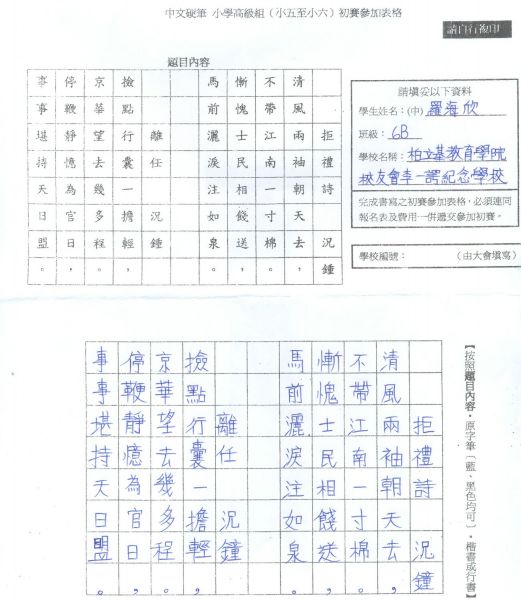 中文硬筆 小學高級組（小五至小六）初賽參加表格
請自行複印
題目內容
拒禮詩 況鍾
清風兩袖朝天去，
不帶江南一寸棉。
慚愧士民相餞送，
馬前灑淚注如泉。
離任 況鍾
撿點行囊一擔輕，
京華望去幾多程。
停鞭靜憶為官日，
事事堪持天日盟。
請填妥以下資料
學生姓名：(中) 羅海欣
班級：6B
學校名稱：柏立基教育學院
校友會李一諤紀念學校
完成書寫之初賽參加表格，必須連同
報名表及費用一併遞交參加初賽。
學校編號： （由大會填寫）
【按照題目內容，原字筆（藍、黑色均可），楷書或行書】
拒禮詩 況鐘
清風兩袖朝天去，
不帶江南一寸棉。
慚愧士民相餞送，
馬前灑淚注如泉。
離任 況鐘
撿點行囊一擔輕，
京華望去幾多程。
停鞭靜憶為官日，
事事堪持天日盟。